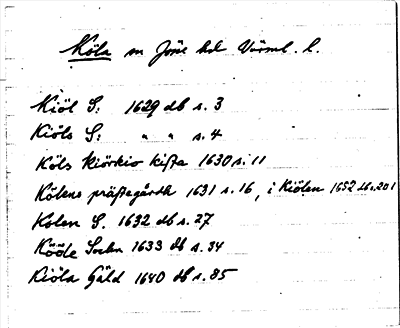 Köla sn Jöse hd Värml. l.
Kiöl S. 1629 db s. 3
Kiöls S: " " s. 4
Köls kiörkio kista 1630 s. 11
Kölens prästegårdh 1631 s. 16, i Kiölen 1652 db s. 201
Kolen S. 1632 db s. 27
Kööle Sochn 1633 db s. 34
Kiöla Gäld 1640 db s. 85